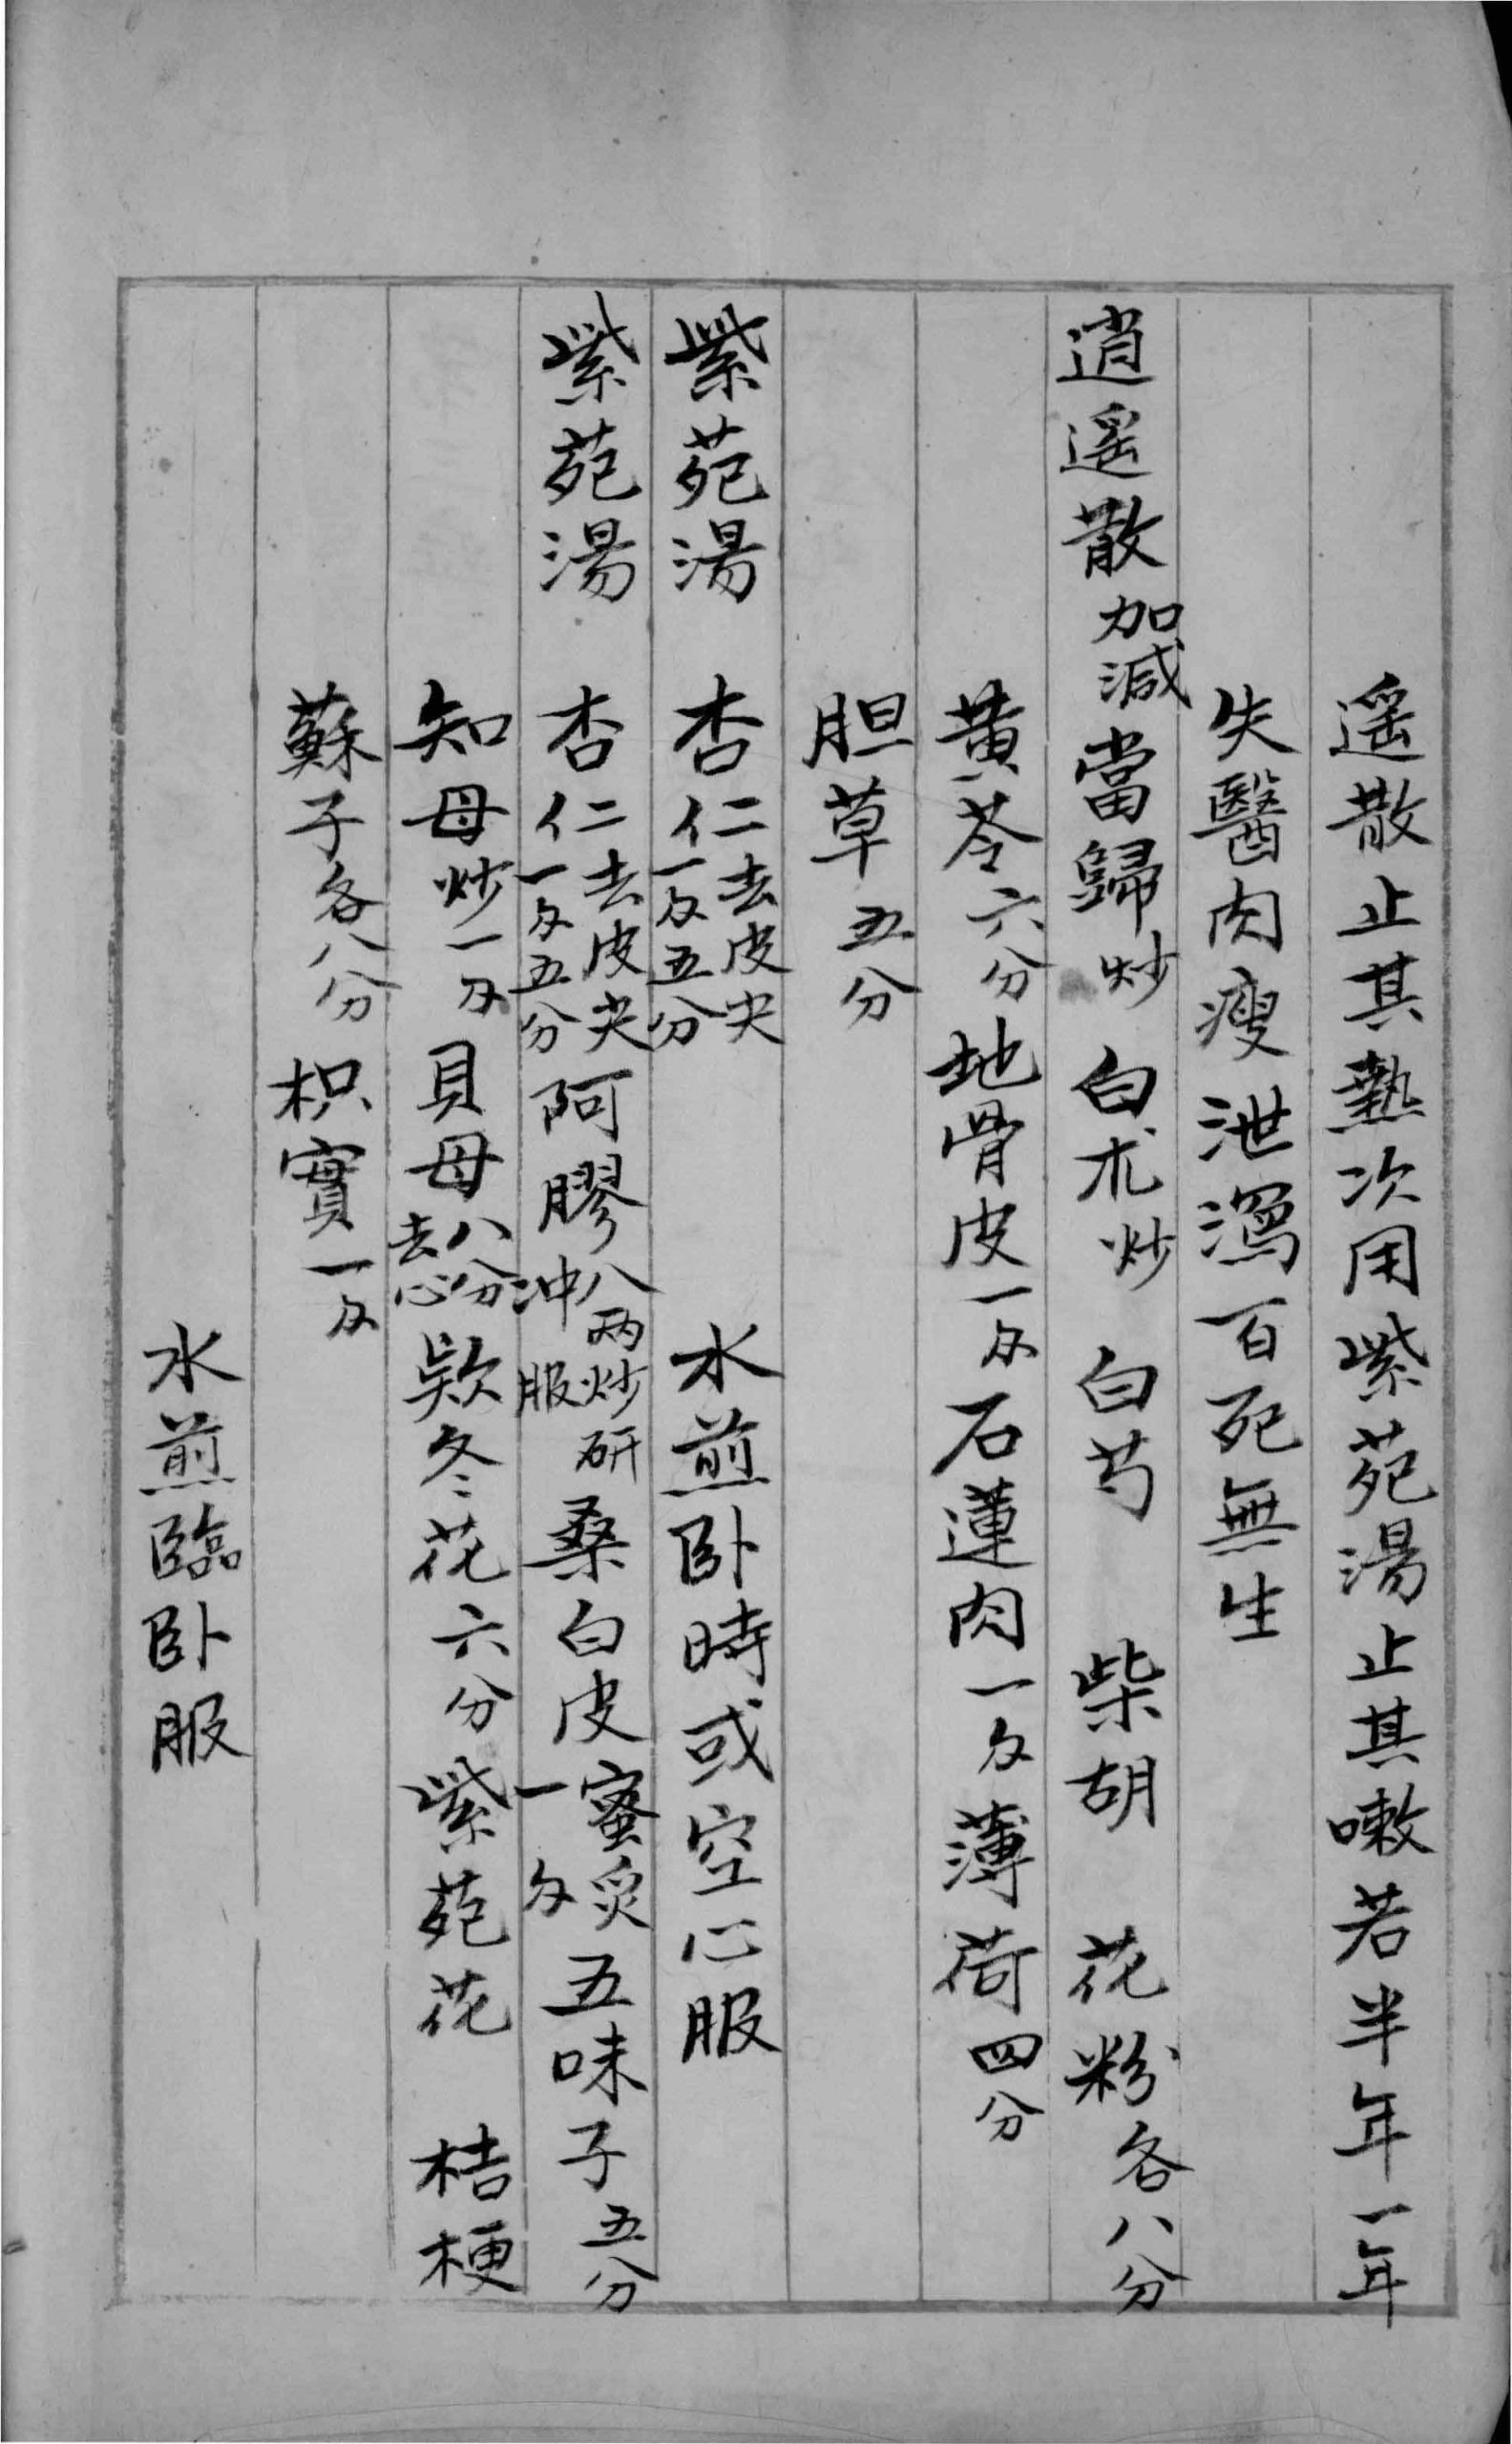 遥散止其熱次用紫苑湯止其嗽若半年一年
失醫肉瘦泄瀉百死無生
逍遥散加減當歸炒白朮炒白芍柴胡花粉各八分
黄芩六分地骨皮一錢石蓮肉一錢薄荷四分
胆草五分
紫苑湯杏仁去皮尖一錢五分水煎卧時或空心服
紫苑湯杏仁去皮尖一錢五分阿膠八兩炒研冲服桑白皮蜜炙一錢五味子五分
知母炒一錢貝母八分去心欵冬花六分紫苑花桔梗
蘇子各八分枳實一錢
水煎臨卧服